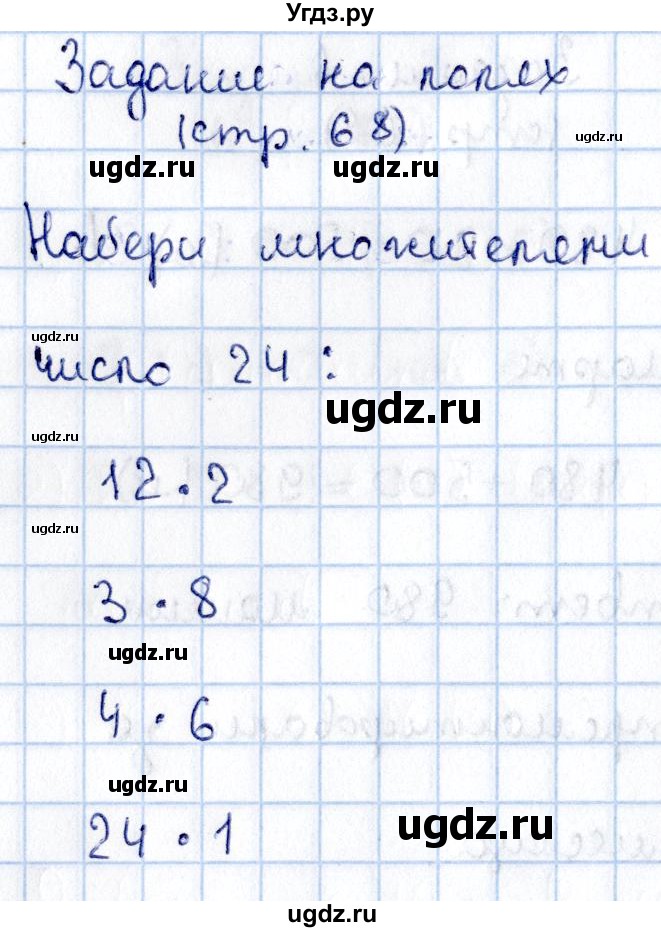 Угдз.ру
Задание на полях
(стр. 68)
ugdz.ru
ugdz.ru
ugdz.ru
Набери множителями
ugdz.ru
число 24:
ugdz.ru
ugdz.ru
12 · 2
ugdz.ru
3 · 8
ugdz.ru
4 · 6
ugdz.ru
24 · 1
ugdz.ru
ugdz.ru